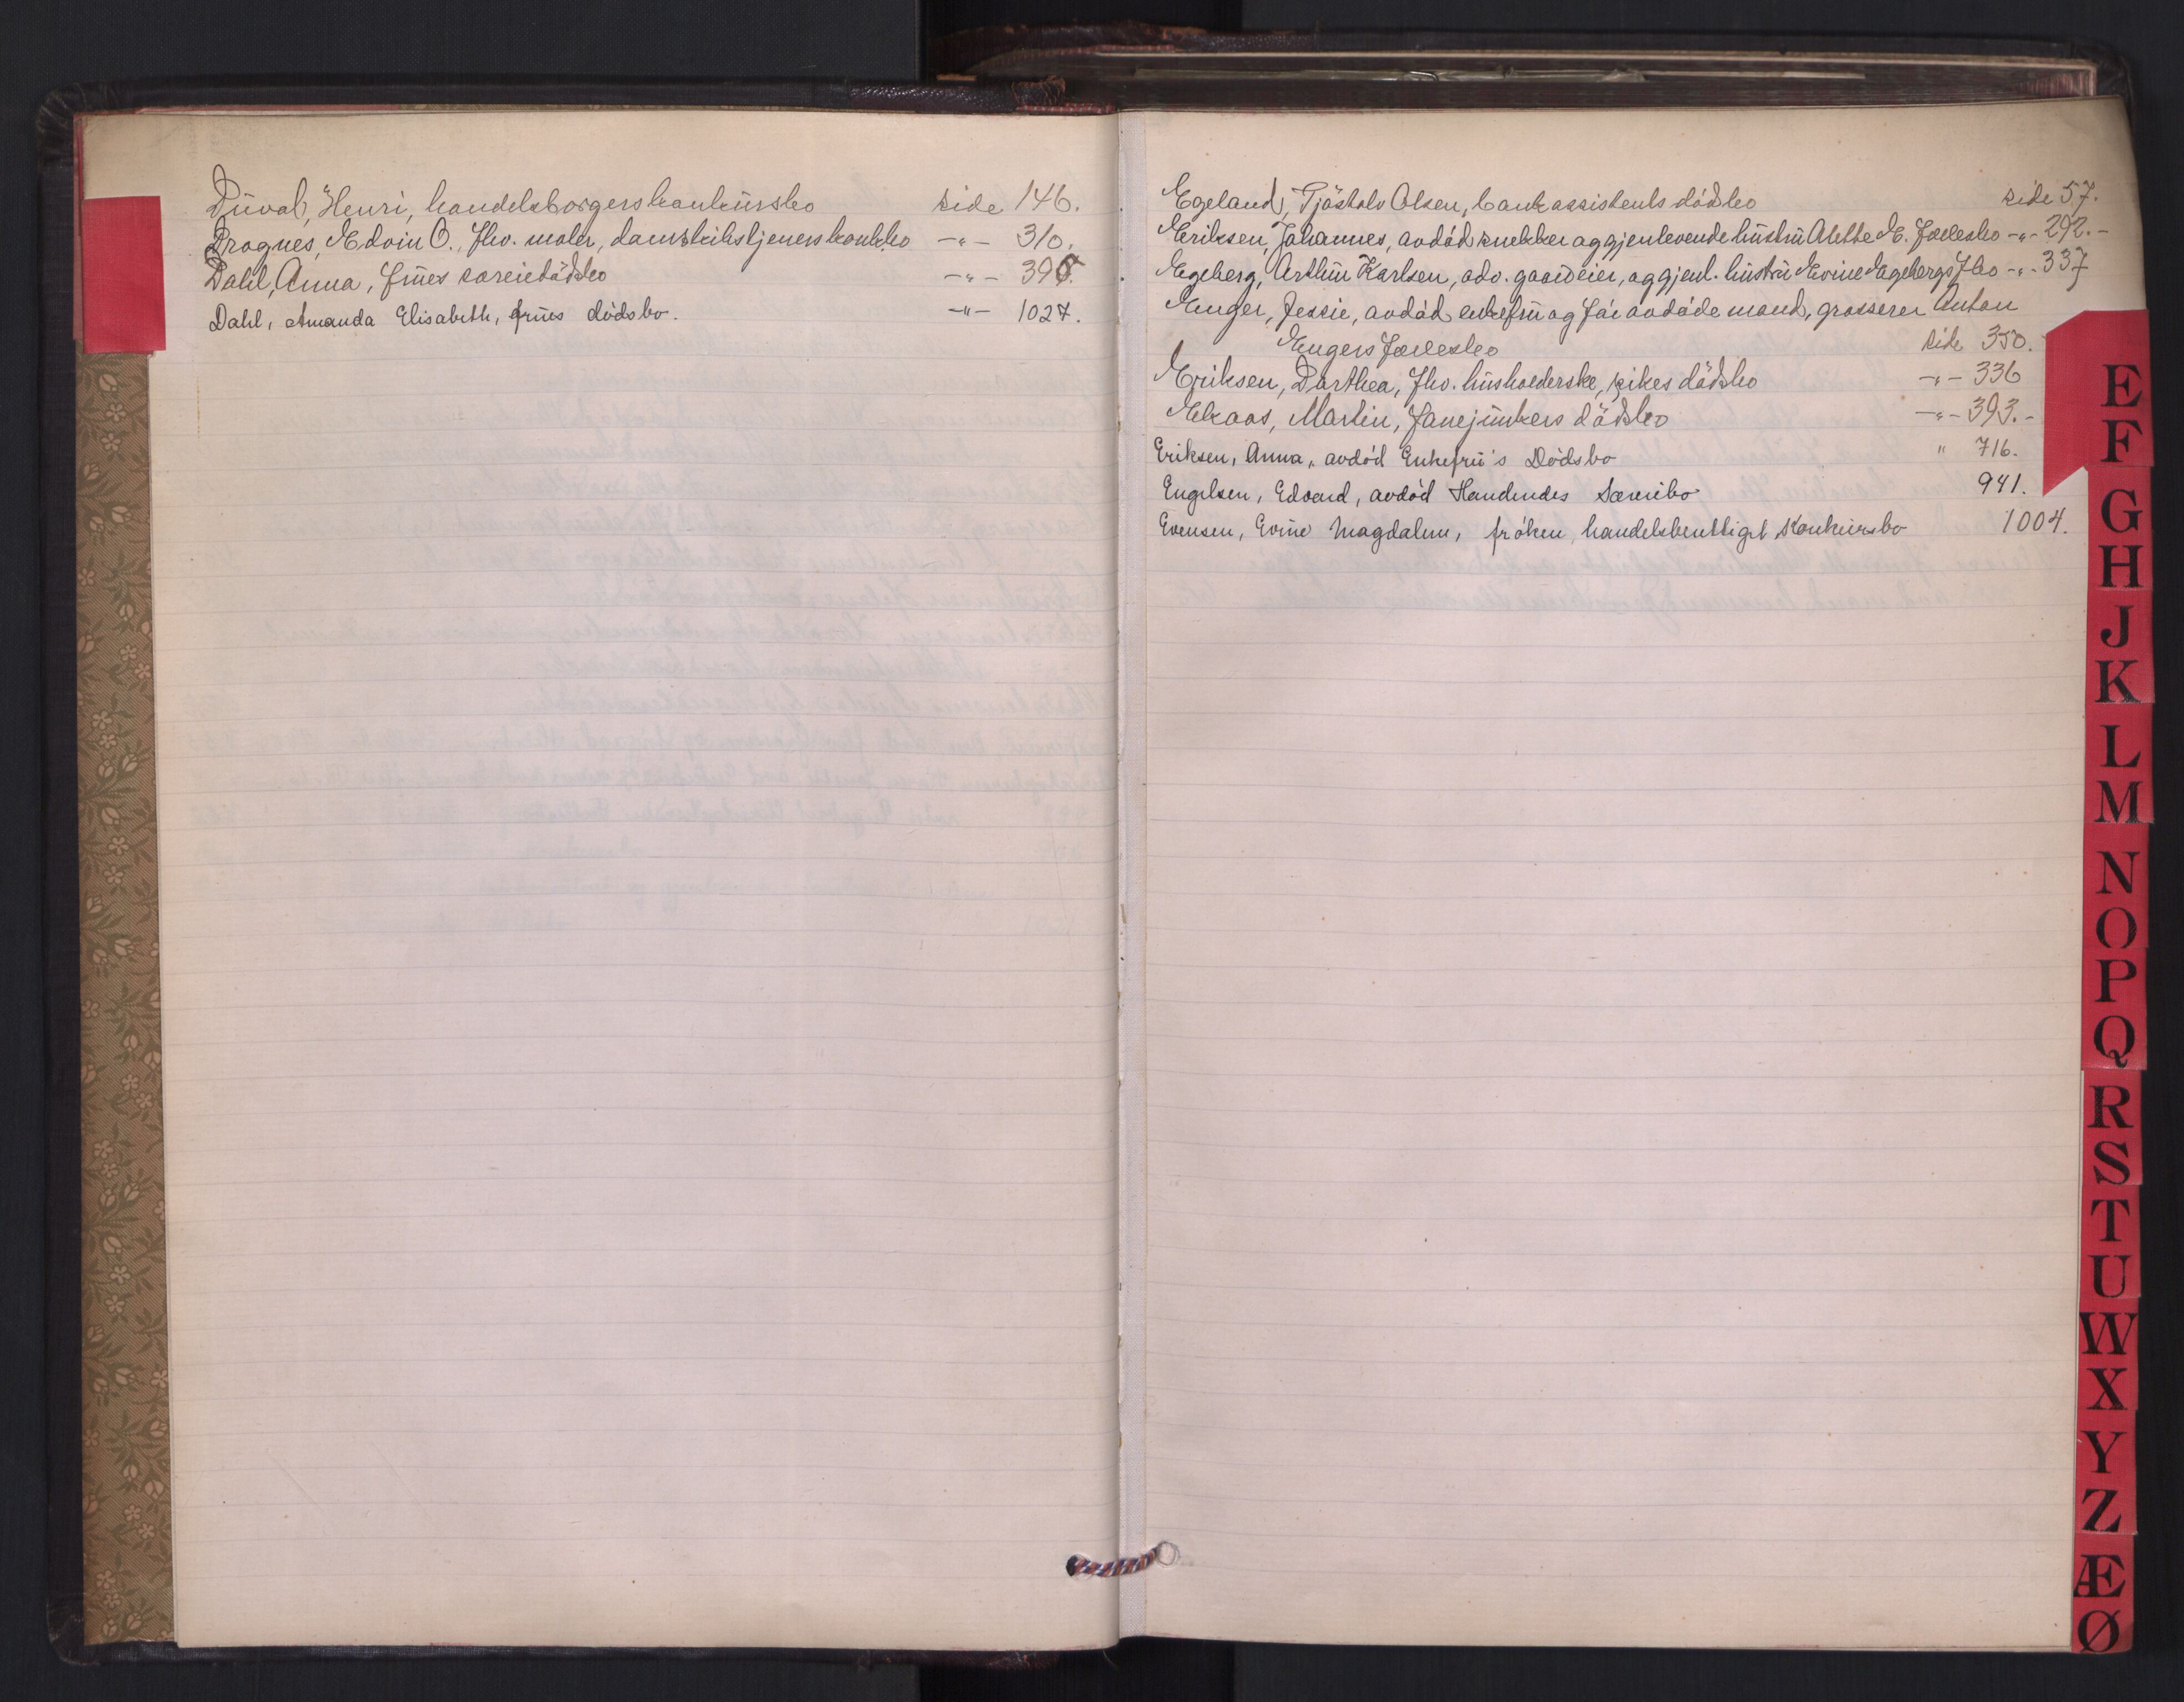 Duval, Henri, handelsborgers konkursbo side 146.
Drognes, Edvin O., fhv. maler, damskibstjeners konk.bo -"- 310.
Dahl, Anna, frues særeiedødsbo -"- 395.
Dahl, Amanda Elisabeth, frues dødsbo. -"- 1027.
Egeland, Tjøstolv Olsen, bankassistents dødsbo side 57.
Eriksen, Johannes, avdød snekker og gjenlevende hustru Alette E. fællesbo -"- 292.-
Egeberg, Arthur Karlsen, adv. gaardeier, og gjenl. hustru Evine Egebergs f.bo -"- 337
Enger, Jessie, avdød enkefru og før avdøde mand, grosserer Anton
Engers fællesbo side 350.
Eriksen, Dorthea, fhv. husholderske, pikes dødsbo -"- 336
Ekaas, Martin, fanejunkers dødsbo -"- 393.-
Eriksen, Anna, avdød Enkefru's Dødsbo " 716.
Engelsen, Edvard, avdød Handlendes Særeiebo 941.
Evensen, Evine Magdalene, frøken, handelsberettiget Konkursbo 1004.
E
F
G
H
J
K
L
M
N
O
P
Q
R
S
T
U
W
X
Y
Z
Æ
Ø